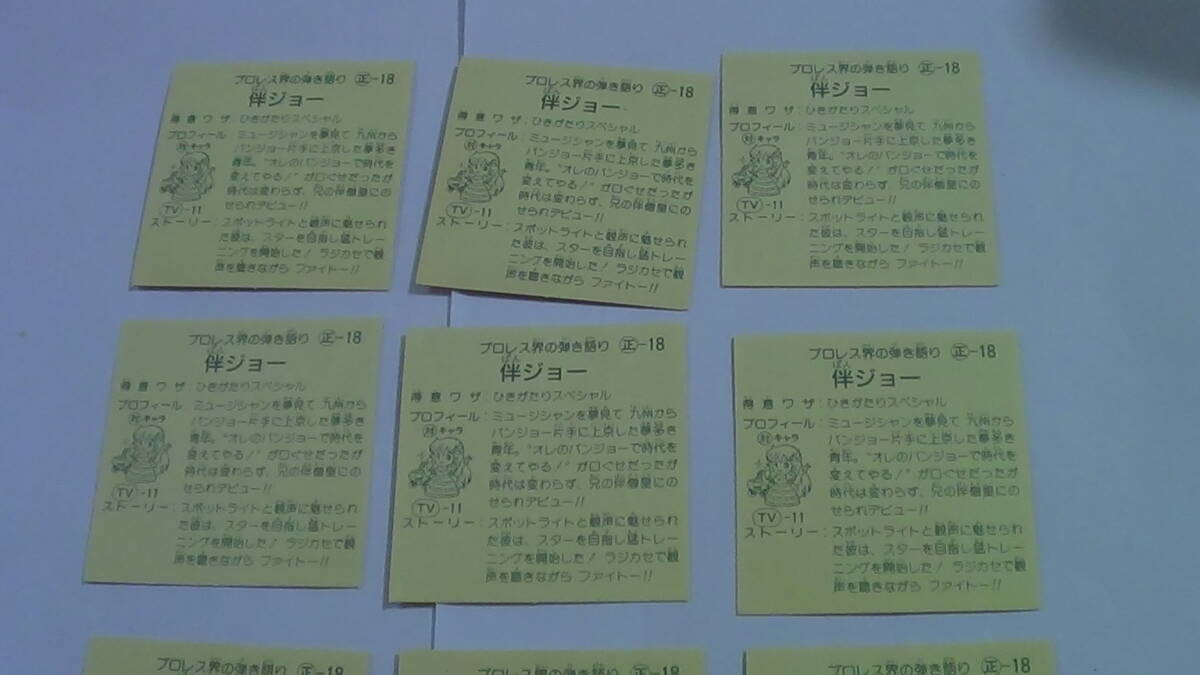 プロレス界の弾き語り 正-18
ばん
伴ジョー
得意ワザ：ひきがたりスペシャル
プロフィール：ミュージシャンを夢見て 九州から
バンジョー片手に上京した夢多き
青年。“オレのバンジョーで時代を
変えてやる！”が口ぐせだったが
時代は変わらず、兄の伴僧皇にの
せられデビュー!!
対キャラ
TV-11
ストーリー：スポットライトと観声に魅せられ
た彼は、スターを目指し猛トレー
ニングを開始した！ ラジカセで観
声を聴きながら ファイトー!!
プロレス界の弾き語り 正-18
ばん
伴ジョー
得意ワザ：ひきがたりスペシャル
プロフィール：ミュージシャンを夢見て 九州から
バンジョー片手に上京した夢多き
青年。“オレのバンジョーで時代を
変えてやる！”が口ぐせだったが
時代は変わらず、兄の伴僧皇にの
せられデビュー!!
対キャラ
TV-11
ストーリー：スポットライトと観声に魅せられ
た彼は、スターを目指し猛トレー
ニングを開始した！ ラジカセで観
声を聴きながら ファイトー!!
プロレス界の弾き語り 正-18
ばん
伴ジョー
得意ワザ：ひきがたりスペシャル
プロフィール：ミュージシャンを夢見て 九州から
バンジョー片手に上京した夢多き
青年。“オレのバンジョーで時代を
変えてやる！”が口ぐせだったが
時代は変わらず、兄の伴僧皇にの
せられデビュー!!
対キャラ
TV-11
ストーリー：スポットライトと観声に魅せられ
た彼は、スターを目指し猛トレー
ニングを開始した！ ラジカセで観
声を聴きながら ファイトー!!
プロレス界の弾き語り 正-18
ばん
伴ジョー
得意ワザ：ひきがたりスペシャル
プロフィール：ミュージシャンを夢見て 九州から
バンジョー片手に上京した夢多き
青年。“オレのバンジョーで時代を
変えてやる！”が口ぐせだったが
時代は変わらず、兄の伴僧皇にの
せられデビュー!!
対キャラ
TV-11
ストーリー：スポットライトと観声に魅せられ
た彼は、スターを目指し猛トレー
ニングを開始した！ ラジカセで観
声を聴きながら ファイトー!!
プロレス界の弾き語り 正-18
ばん
伴ジョー
得意ワザ：ひきがたりスペシャル
プロフィール：ミュージシャンを夢見て 九州から
バンジョー片手に上京した夢多き
青年。“オレのバンジョーで時代を
変えてやる！”が口ぐせだったが
時代は変わらず、兄の伴僧皇にの
せられデビュー!!
対キャラ
TV-11
ストーリー：スポットライトと観声に魅せられ
た彼は、スターを目指し猛トレー
ニングを開始した！ ラジカセで観
声を聴きながら ファイトー!!
プロレス界の弾き語り 正-18
ばん
伴ジョー
得意ワザ：ひきがたりスペシャル
プロフィール：ミュージシャンを夢見て 九州から
バンジョー片手に上京した夢多き
青年。“オレのバンジョーで時代を
変えてやる！”が口ぐせだったが
時代は変わらず、兄の伴僧皇にの
せられデビュー!!
対キャラ
TV-11
ストーリー：スポットライトと観声に魅せられ
た彼は、スターを目指し猛トレー
ニングを開始した！ ラジカセで観
声を聴きながら ファイトー!!
プロレス界の弾き語り 正-18
プロレス界の弾き語り 正-18
プロレス界の弾き語り 正-18